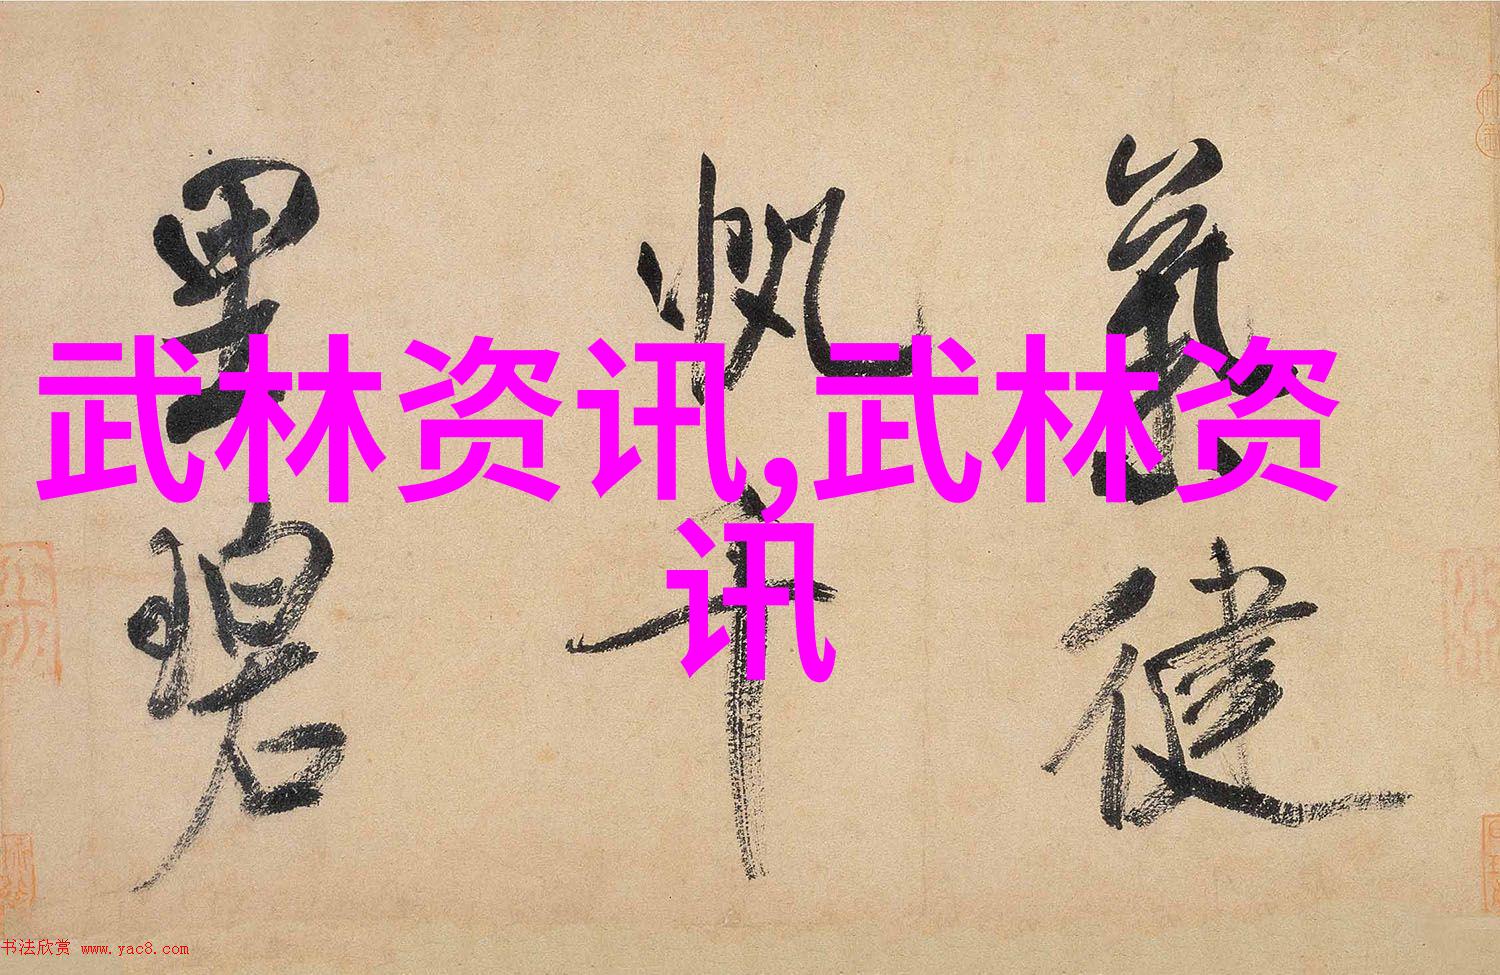 氣健
帆千
里碧
武林资讯,武林资
讯
书法欣赏 www.yac8.com